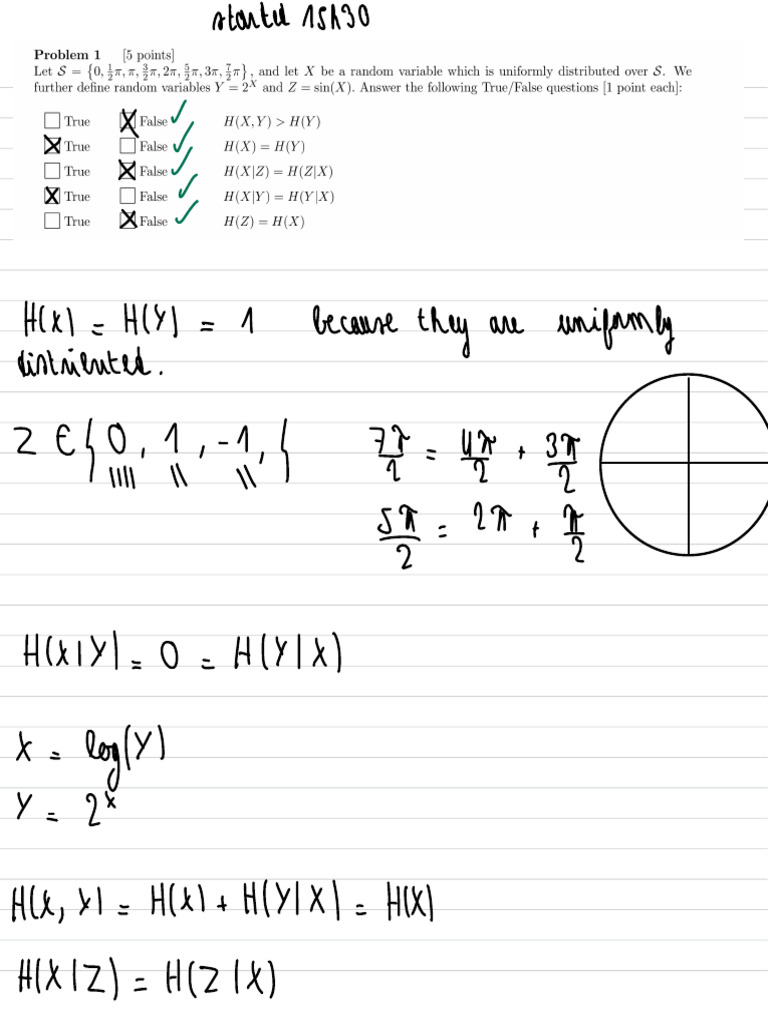 started 15h30
Problem 1 [5 points]
Let S = {0, ½π, π, 3/2π, 2π, 5/2π, 3π, 7/2π}, and let X be a random variable which is uniformly distributed over S. We
further define random variables Y = 2^X and Z = sin(X). Answer the following True/False questions [1 point each]:
☐ True ☒ False ✓ H(X, Y) > H(Y)
☒ True ☐ False ✓ H(X) = H(Y)
☐ True ☒ False ✓ H(X|Z) = H(Z|X)
☒ True ☐ False ✓ H(X|Y) = H(Y|X)
☐ True ☒ False ✓ H(Z) = H(X)
H(X) = H(Y) = 1 because they are uniformly
distributed.
Z ∈ { 0, 1, -1, }
7π/2 = 4π/2 + 3π/2
5π/2 = 2π + π/2
H(X|Y) = 0 = H(Y|X)
X = log(Y)
Y = 2^X
H(X, Y) = H(X) + H(Y|X) = H(X)
H(X|Z) = H(Z|X)